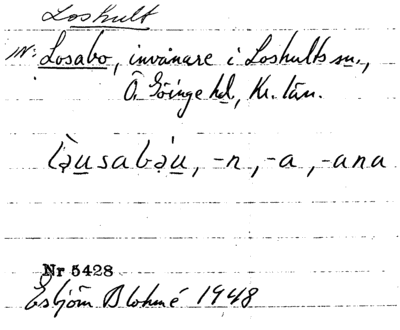 Loskult
Losabo, invånare i Loshults sn.,
Ö. Göinge hd, Kr. län.
lə̀usabə́u, -n, -a, -ana
Nr 5428
Esbjörn Blohmé 1948